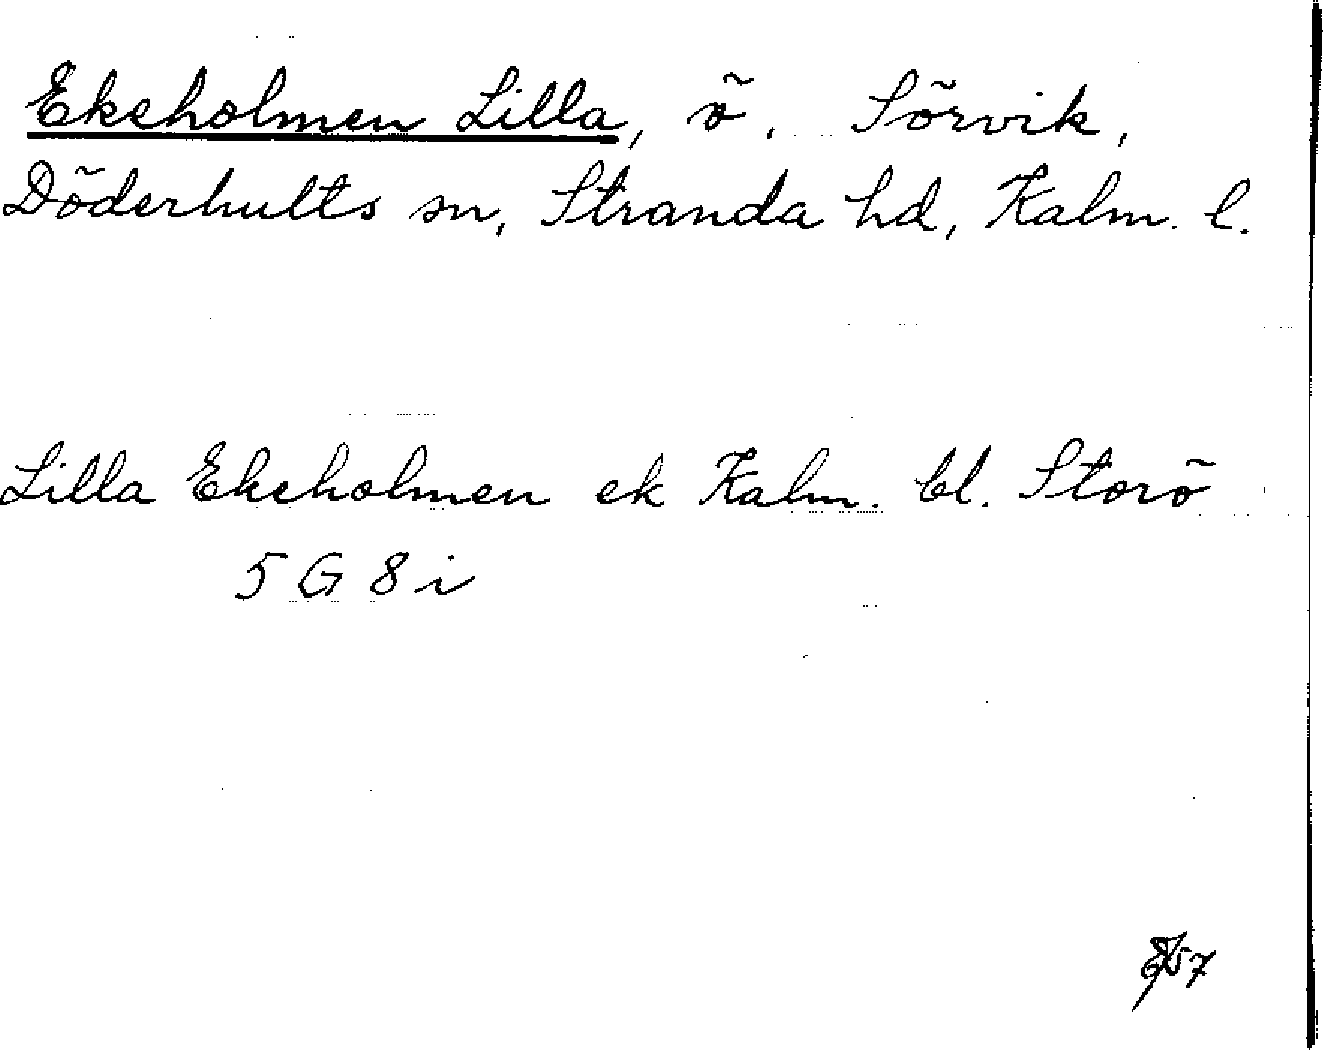 Ekeholmen Lilla, ö, Sörvik,
Döderhults sn, Stranda hd, Kalm. l.
Lilla Ekeholmen ek Kalm. bl. Storö
5 G 8 i